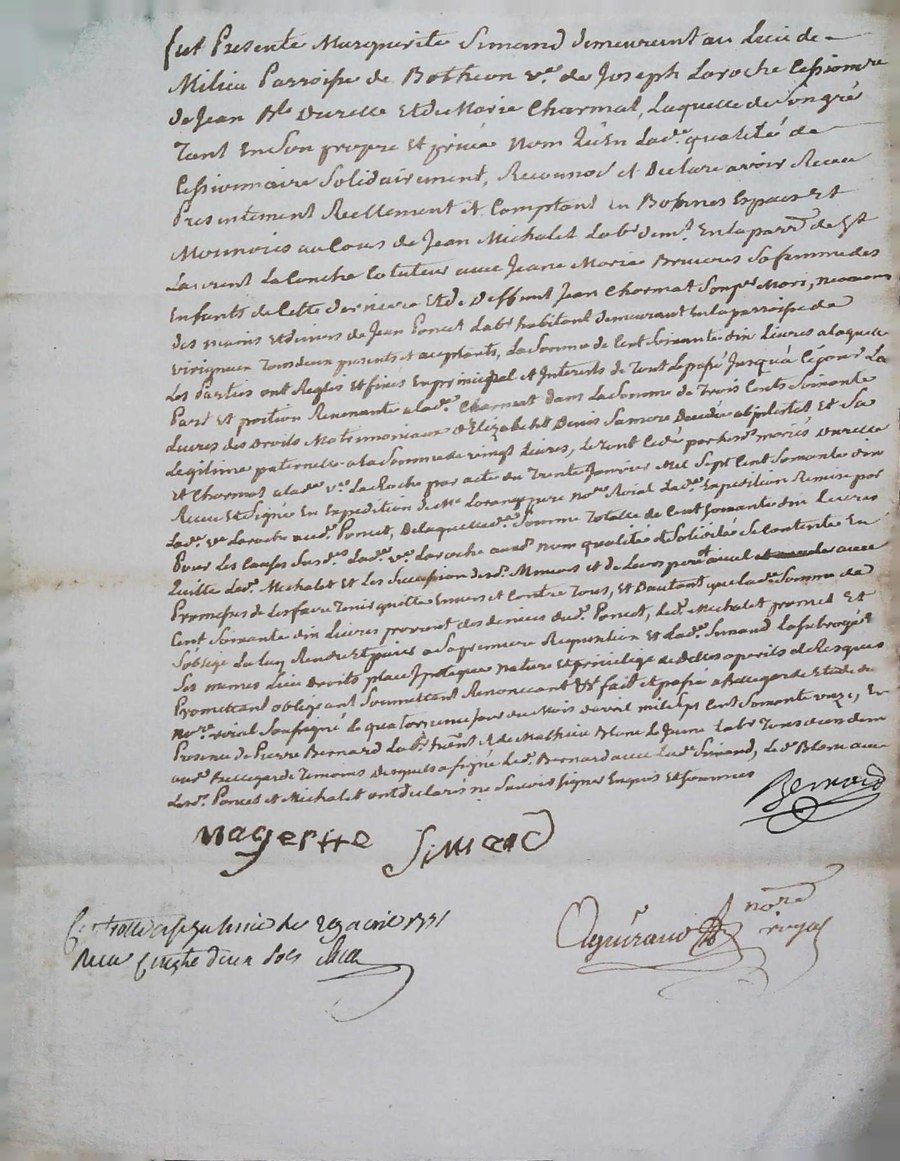 fut Presente Marguerite Simand demeurant au Lieu de
Milieu Parroisse de Botheon v.ve de Joseph Laroche Cessionre
de Jean Bte Durelle Et de Marie Charmat, Laquelle de Son gré
Tant En Son propre et privé Nom qu'En Lad.e qualité de
Cessionnaire Solidairement, Reconnoî et Declare avoir Receu
Presentement Reellement et Comptant En Bonnes Espaces Et
Monnoies au Cours de Jean Michalet Lab.r dem.t En la parr.e de St
Laurent La Conche Cotuteur avec Jeane Marie Bruieres Sa femme des
Enfants de Cette derniere Et de Deffunt Jean Charmat Son p.r Mari,
des mains Et deniers de Jean Poncet Lab.r habitant demeurant En la parroisse de
virigneux Tous deux presents et aceptants, La Somme de Cent Soixante dix Livres a laquelle
Les Parties ont Reglés Et fixés En principal et Interests de Tout Le passé Jusqu'à Ce jour La
Part Et portion Revenante a lad.e Charmat dans La Somme de Trois Cents Soixante
Livres des Droits Matrimoniaux d'Elizabeth Denis Sa mere Decedée ab intestat Et Sa
Legitime paternelle a la Somme de vingt Livres, le Tout Cedé par Les d. mariés Durelle
et Charmat a lad.e v.ve La Roche par acte du Trente Janvier Mil Sept Cent Soixante dix
Receu Et Signé En Expedition de M.e no.re Roial Lad.e Expedition Remise par
Lad.e v.ve Laroche aud. Poncet, De laquelle d.e Somme Totalle de Cent Soixante dix Livres
Pour Les Causes Susd.es Lad.e v.ve Laroche aud. nom qualité et Solidité Se Contente En
Quitte Led. Michalet Et Les Succession des d. Mineurs et de Leurs pere avec
Promesses de Les faire Tenir quitte Envers et Contre Tous, Et Dautant que lad.e Somme de
Cent Soixante dix Livres provient des deniers dud. Poncet, Led. Michalet promet Et
S'oblige La luy Rendre Et paier a Sa premiere Requisition Et Lad.e Simand La Subrogé
Ses memes Lieu Droits place Ipoteque nature Et privilege de Dettes a perils et Risques
Promettant obligeant Soumettant Renonceant &c fait et passé a Bellegarde Etude du
no.re roial Soussigné Le quatorzieme jour du Mois d'avril mil sept Cent Soixante onze, En
Presence de Pierre Bernard Lab.r & de Mathieu Blanc Le Jeune Lab.r Tous deux dem
aud. Bellegarde Temoins Desquels a Signe Led. Bernard avec Lad.e Simand, Led. Blanc avec
Lesd. Poncet et Michalet ont declarés ne Savoir Signe Enquis Et Sommes
Bernard
Magerite Simand
no.re
royal
Controllé a le 29 avril 1771
Receu Cinq deux Sols